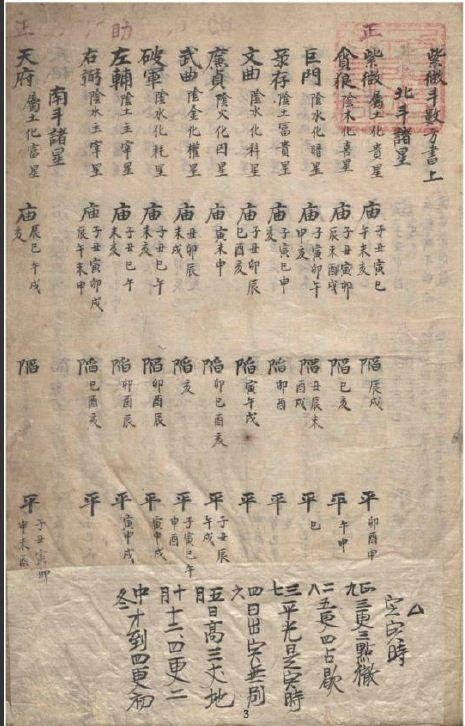 正 助 正
紫微斗數方書上
北斗諸星
紫微 屬土化貴星 庙 子丑寅巳午未亥 陷 辰戌 平 卯酉申
貪狼 陰木化喜星 庙 子丑寅卯辰未酉戌 陷 巳亥 平 午申
巨門 陰水化暗星 庙 子寅卯午申亥 陷 丑辰未酉戌 平 巳
录存 陰土富貴星 庙 子寅巳申 陷 卯酉 平
文曲 陰水化科星 庙 子丑卯辰巳酉亥 陷 寅午戌 平
廉貞 陰火化囚星 庙 寅未申 陷 卯巳酉亥 平 子丑辰午戌
武曲 陰金化權星 庙 丑卯辰未戌 陷 亥 平 子寅巳午申酉
破軍 陰水化耗星 庙 子丑巳午未亥 陷 卯酉辰 平 寅申戌
左輔 陰土主宰星 庙 子丑巳午未亥 陷 卯酉辰 平 寅申戌
右弼 陰水主宰星 庙 子丑寅卯戌辰午未申 陷 巳酉亥 平
南斗諸星
天府 屬土化富星 庙 辰巳午戌亥 陷 平 子丑寅卯申未酉
定寅時
正九三更三點徹
二八五更四占歇
三七平光是寅時
四六日出寅無別
五月日高三丈地
十月十二四更二
中冬才到四更初
3